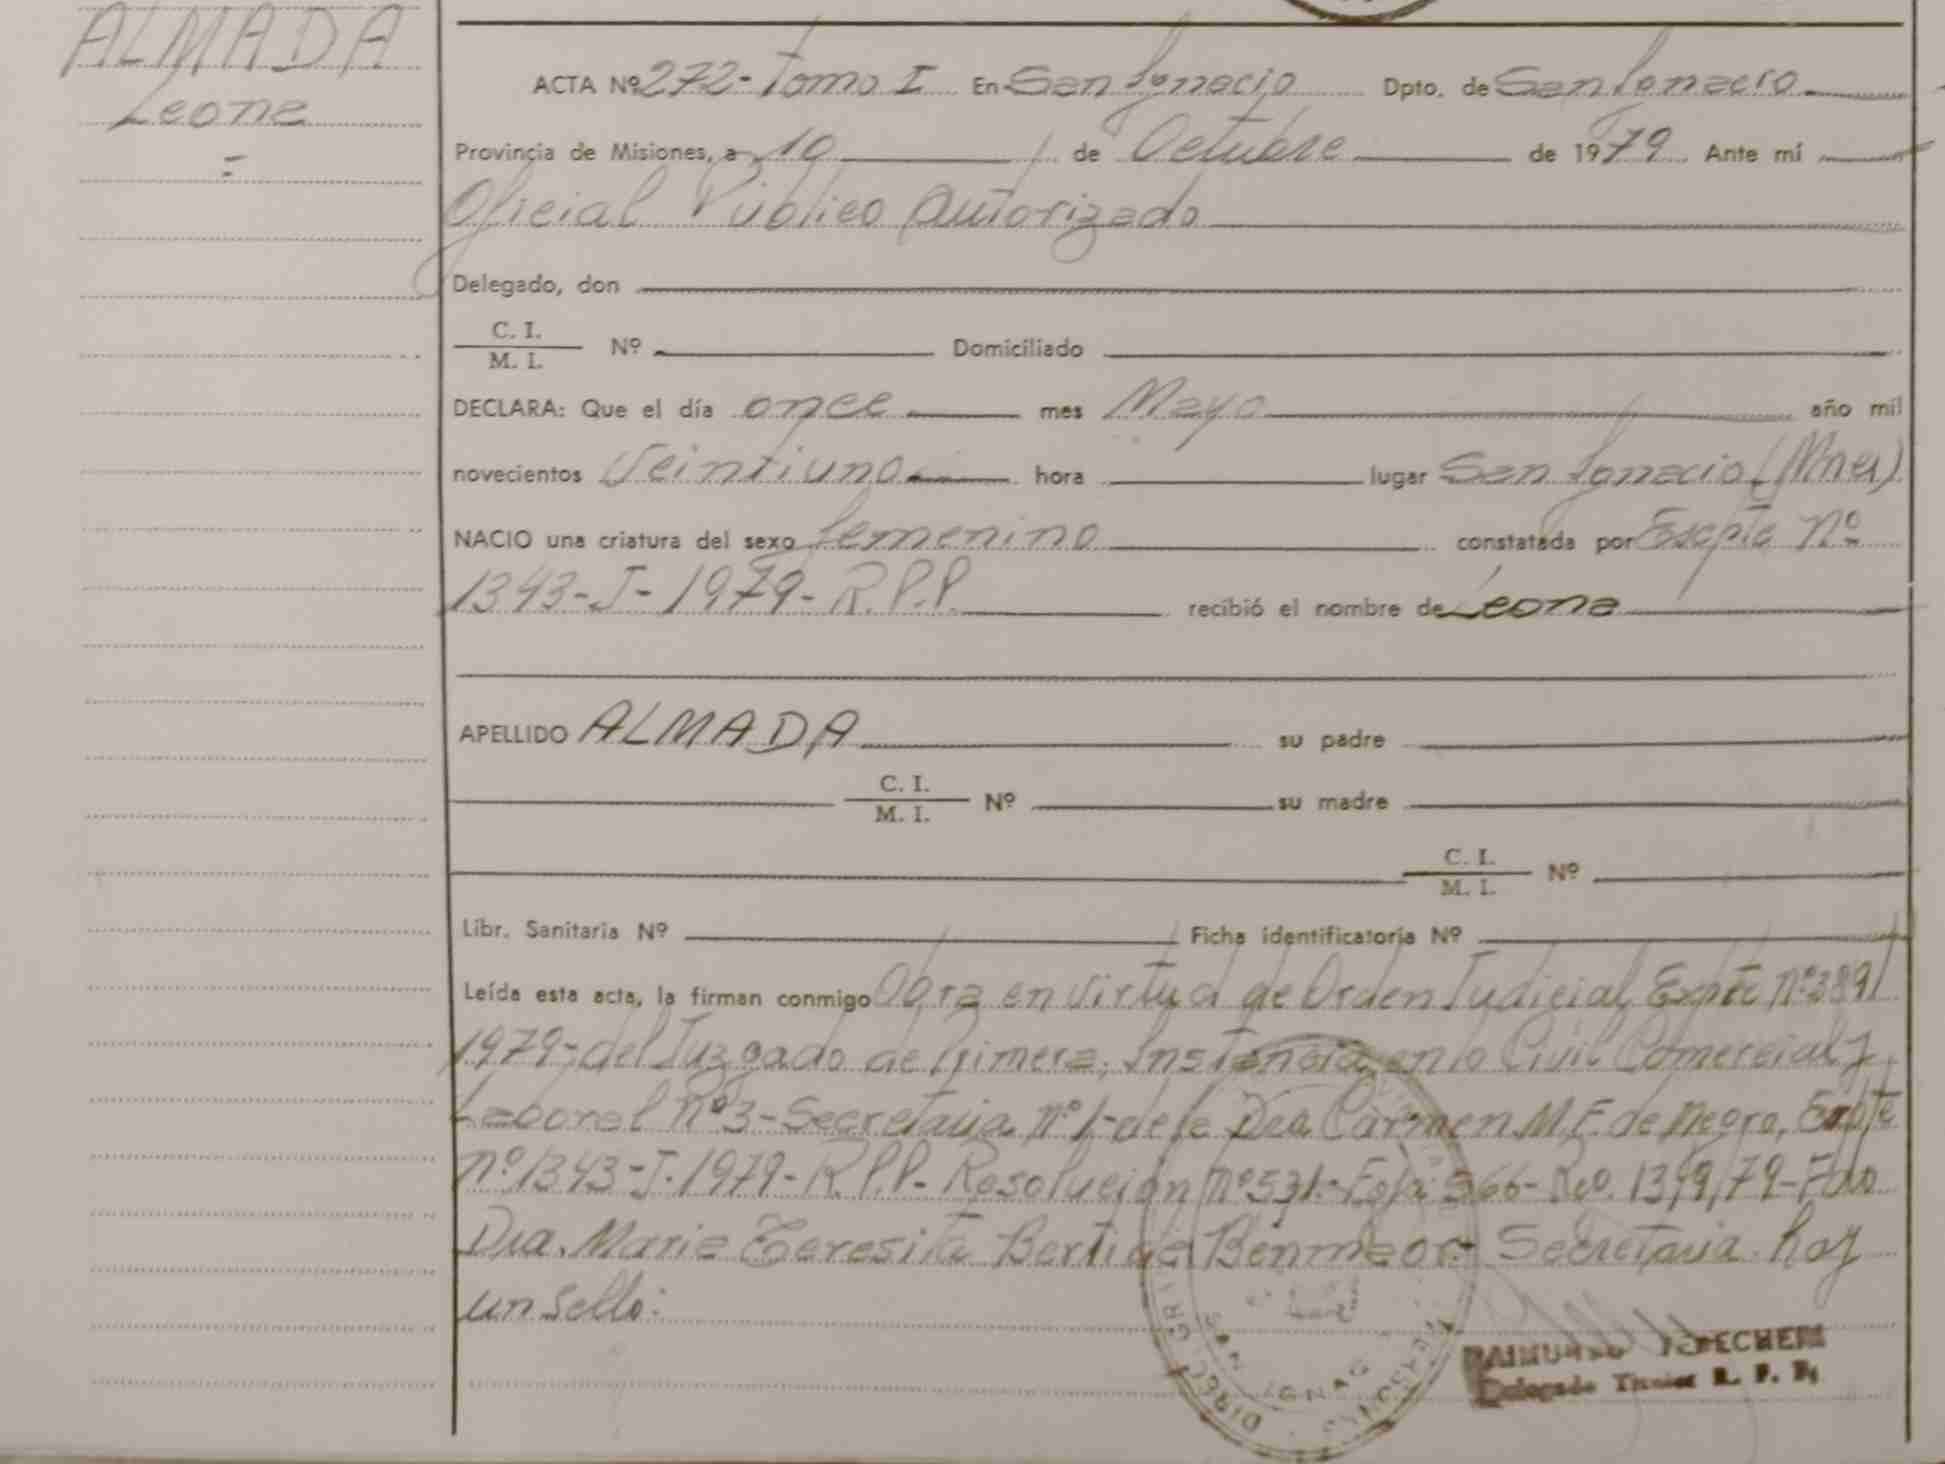 ALMADA
Leona
ACTA Nº 272 - Tomo I En San Ignacio Dpto. de San Ignacio
Provincia de Misiones, a 10 de Octubre de 1979 Ante mí
Oficial Público Autorizado
Delegado, don
C. I.
M. I. Nº Domiciliado
DECLARA: Que el día once mes Mayo año mil
novecientos Veintiuno hora lugar San Ignacio (Mnes)
NACIO una criatura del sexo femenino constatada por Expte Nº
1343-J-1979-R.P.P. recibió el nombre de Leona
APELLIDO ALMADA su padre
C. I.
M. I. Nº su madre
C. I.
M. I. Nº
Libr. Sanitaria Nº Ficha identificatoria Nº
Leída esta acta, la firman conmigo Obra en virtud de Orden Judicial Expte nº 389/
1979-del Juzgado de Primera, Instancia en lo Civil Comercial y
Laboral nº 3-Secretaria nº 1-de la Dra Carmen M.F. de Negro, Expte
nº 1343-J-1979-R.P.P. Resolución nº 531.-Foja 566- 79-Fdo
Dra. Maria Teresita Berti de Benmaor- Secretaria hay
un sello:
DIREC
SAN IGNAC
MISIONES
Delegado R. P. P.